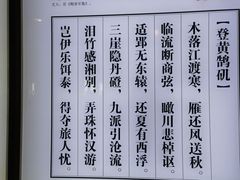 【登黄鹄矶】
木落江渡寒，雁还风送秋。
临流断商弦，瞰川悲棹讴。
适郢无东辕，还夏有西浮。
三崖隐丹磴，九派引沧流。
泪竹感湘别，弄珠怀汉游。
岂伊乐饵泰，得夺旅人忧。